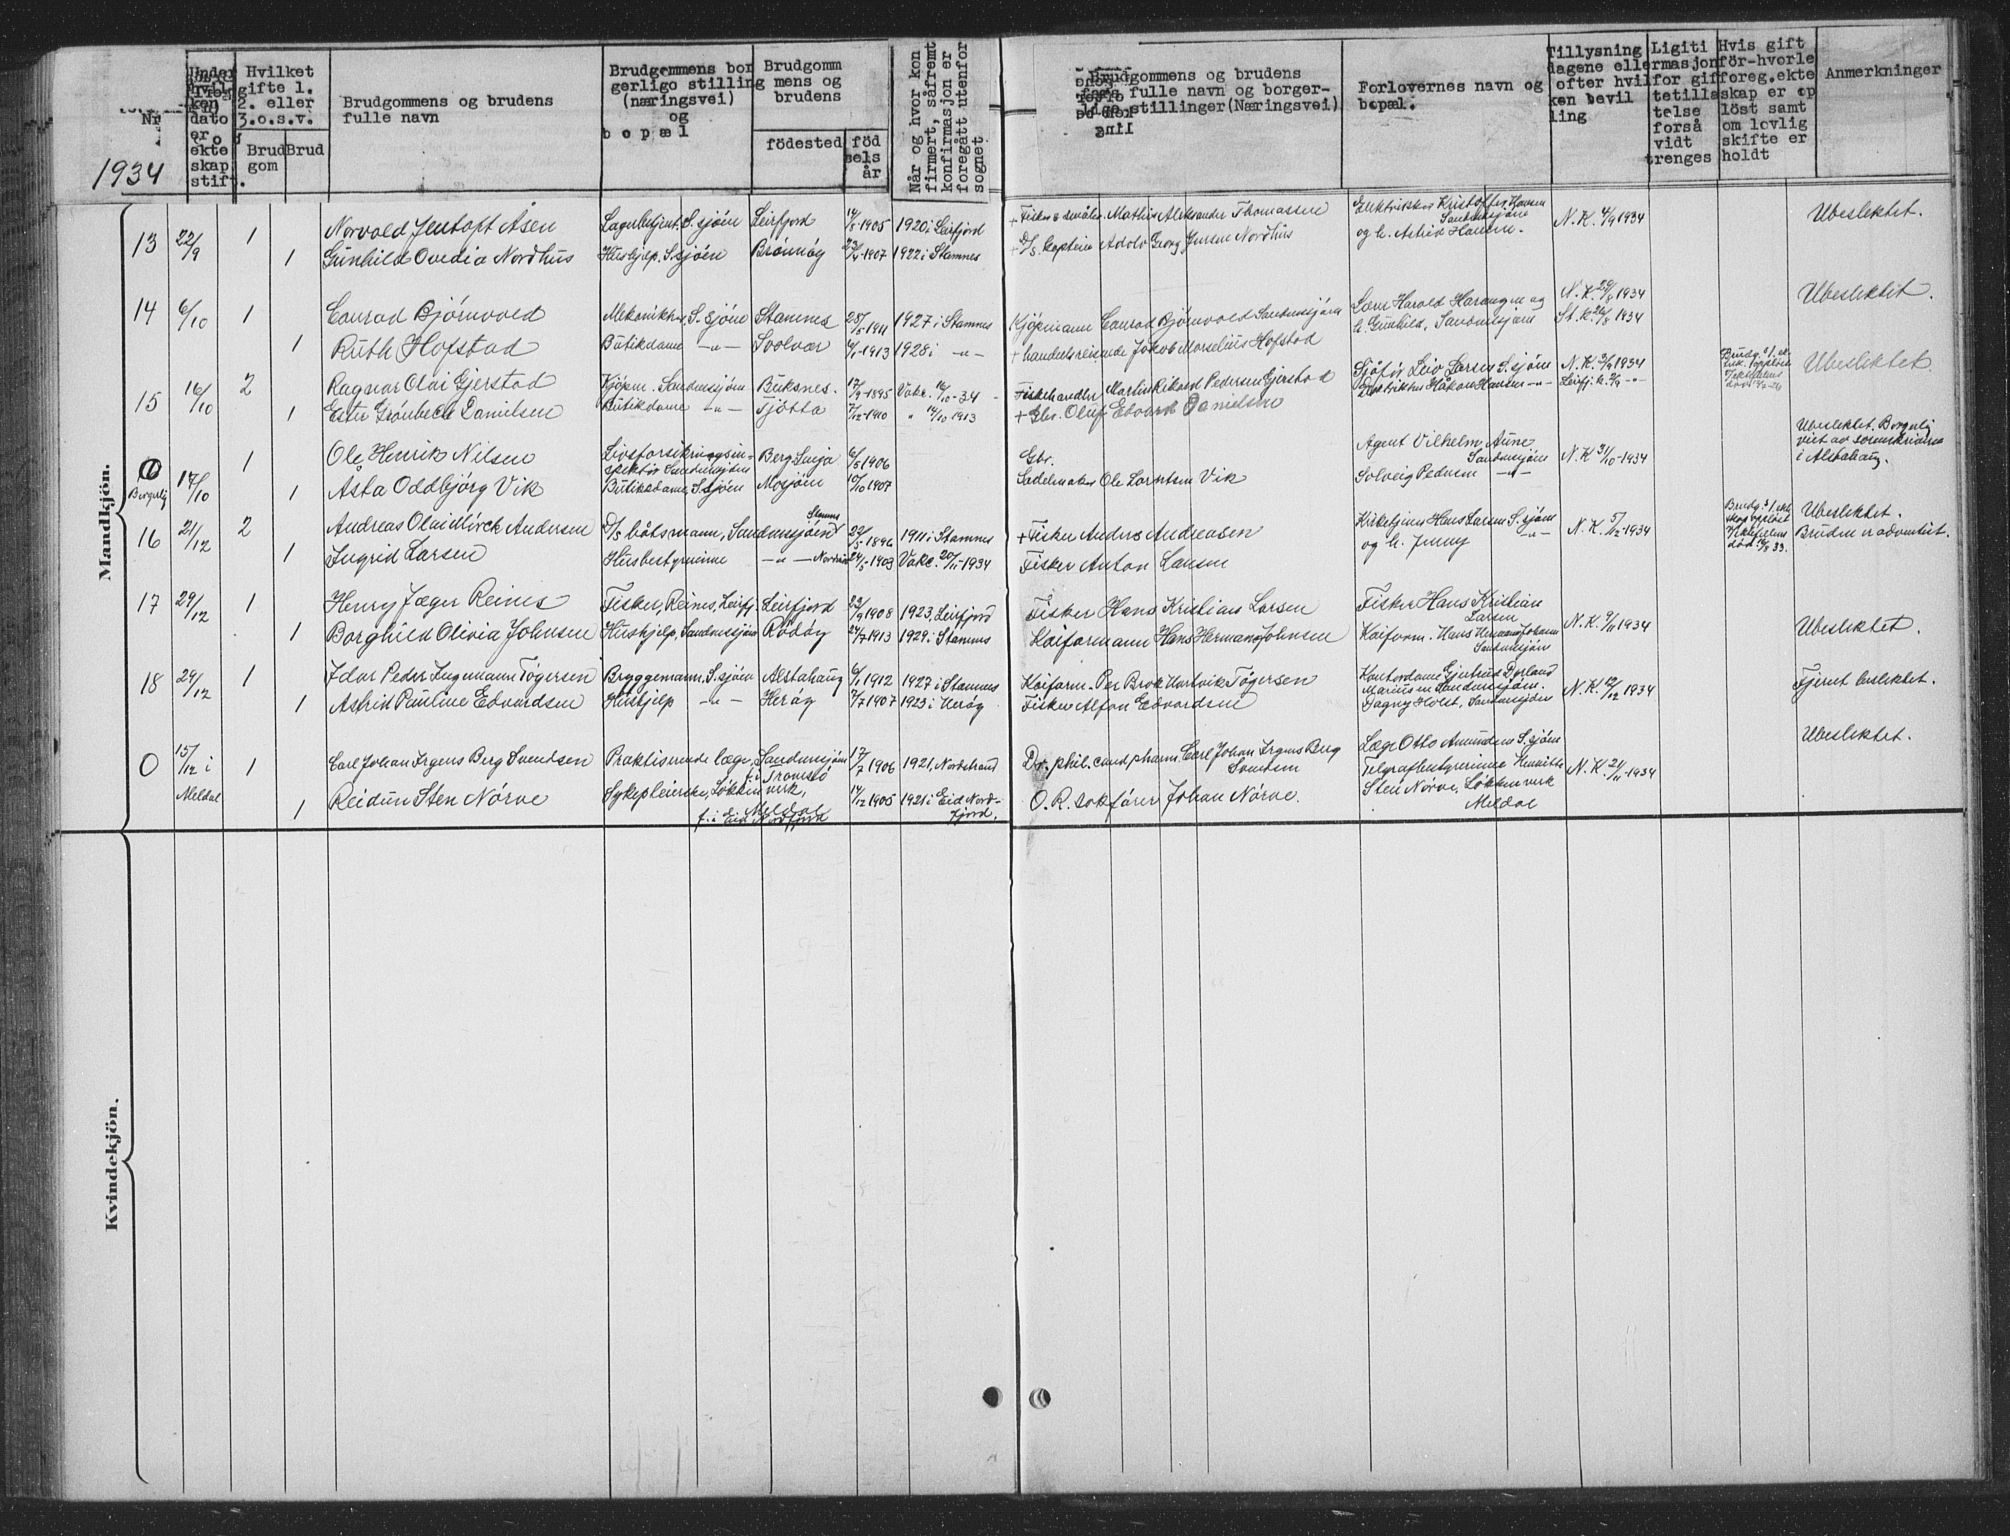 1934
Nr.
Under hvilken dato er ekteskap stift.
Hvilket gifte 1. 2. eller 3.o.s.v.
Brudgom
Brud
Brudgommens og brudens fulle navn
Brudgommens borgerlige stilling (næringsvei) og bopæl
Brudgommens og brudens
födested
födselsår
Når og hvor konfirmert, såfremt konfirmasjon er foregått utenfor sognet
Brudgommens og brudens fars fulle navn og borgerlige stillinger (Næringsvei)
Forlovernes navn og bopæl.
Tillysningsdagene eller efter hvilken bevilling
Hvis gift för-hvorledes foreg. ekteskap er opplöst samt om lovlig skifte er holdt
Anmerkninger
Mandkjön.
13 22/9 1 Norvald Jentoft Åsen Lagerbetjent, S.sjöen Leirfjord 1905 1920 i Leirfjord + Fisker & småbr. Mathias Aleksander Thomassen Elektriker Kristoffer Hansen Sandnessjöen N.K. 4/9 1934 Ubeslektet.
1 Gunhild Ovedia Nordhus Hushjelp. S.sjöen Brönnöy 1907 1922 i Stamnes D/S. kaptein Adolv Georg Jensen Nordhus og h. Astrid Hansen.
14 6/10 1 Conrad Bjørnvold Mekaniker, S.sjöen Stamnes 25/5 1911 1927 i Stamnes Kjöpmann Conrad Bjørnvold Sandnessjöen Lærer Harald Haraugen og h. Gunhild, Sandnessjöen N.K. 29/8 1934 St.K. 29/8 1934 Ubeslektet.
1 Ruth Hofstad Butikdame -"- Svolvær 1913 1928 i -"- + handelsreisende Jakob Marselius Hofstad
15 16/10 2 Ragnar Olai Gjerstad Kjöpm. Sandnessjöen Buksnes. 17/9-1895 Vake. 16/10-34 Fiskehandler Martin Rikard Pedersen Gjerstad Leiv Larsen S.sjöen N.K. 3/9 1934 Ubeslektet
1 Ester Grönbeck Danielsen Butikdame -"- Tjötta 7/12-1910 " 14/10 1913 + Gbr. Oluf Edvard Danielsen Håkon Hansen -"-
0 Borgerlig 17/10 1 Ole Henrik Nilsen Livsforsikringsinspektör Sandnessjöen Berg Senja 6/5 1906 Gbr. Agent Vilhelm Aune Sandnessjöen N.K. 31/10-1934 Ubeslektet. Borgerlig viet av sorenskriveren i Alstahaug.
1 Asta Oddbjörg Vik Butikdame, S.sjöen Mosjöen 10/10 1907 Sadelmaker Ole Lorntsen Vik Solveig Pedersen -"-
16 21/12 2 Andreas Olai Mörck Andersen D/S båtsmann, Sandnessjöen Stamnes 22/5-1896 1911 i Stamnes + Fisker Anders Andreasen Kirketjener Hans Larsen S.sjöen N.K. 5/12 1934 Ubeslektet.
1 Ingrid Larsen Husbestyrerinne -"- 24/5-1903 Vake. 20/11-1934 Fisker Anton Larsen og h. Jenny -"- Bruden er adventist.
17 29/12 1 Henry Jæger Reines Fisker, Reines, Leirfj. Leirfjord 22/9 1908 1923, Leirfjord Fisker Hans Kristian Larsen Fisker Hans Kristian Larsen N.K. 9/11 1934 Ubeslektet.
1 Borghild Olivia Johnsen Hushjelp, Sandnessjöen Rödöy 24/7 1913 1929. i Stamnes Kaiformann Hans Hermann Johnsen Kaiform. Hans Hermann Johnsen Sandnessjöen
18 29/12 1 Idar Peder Ingemann Tögersen Bryggemann. S.sjöen Alstahaug 6/1 1912 1927 i Stamnes Kaiform. Per Brok Hartvik Tögersen Kontordame Gjertrud Dyrland Sandnessjöen. N.K. 12/12 1934 Fjernt beslektet.
1 Astrid Pauline Edvardsen Hushjelp -"- Heröy 7/7 1907 1923 i Heröy Fisker Alfon Edvardsen Dagny Holst, Sandnessjöen
0 15/12 i Meldal 1 Carl Johan Irgens Berg Svendsen Praktiserende læge, Sandnessjöen f. i Tromsö 17/7 1906 1921, Nordstrand Dr. phil. cand pharm Carl Johan Irgens Berg Svendsen Læge Otto Amundsen S.sjöen N.K. 21/11-1934 Ubeslektet.
1 Reidun Sten Nörve Sykepleierske, Lökkenverk, Meldal f. i Eid Nordfjord 14/12 1905 1921 i Eid Nordfjord. O.R. sakförer Johan Nörve. Telgrafbestyrerinne Henriette Sten Nörve, Lökkenverk Meldal
Kvindekjön.